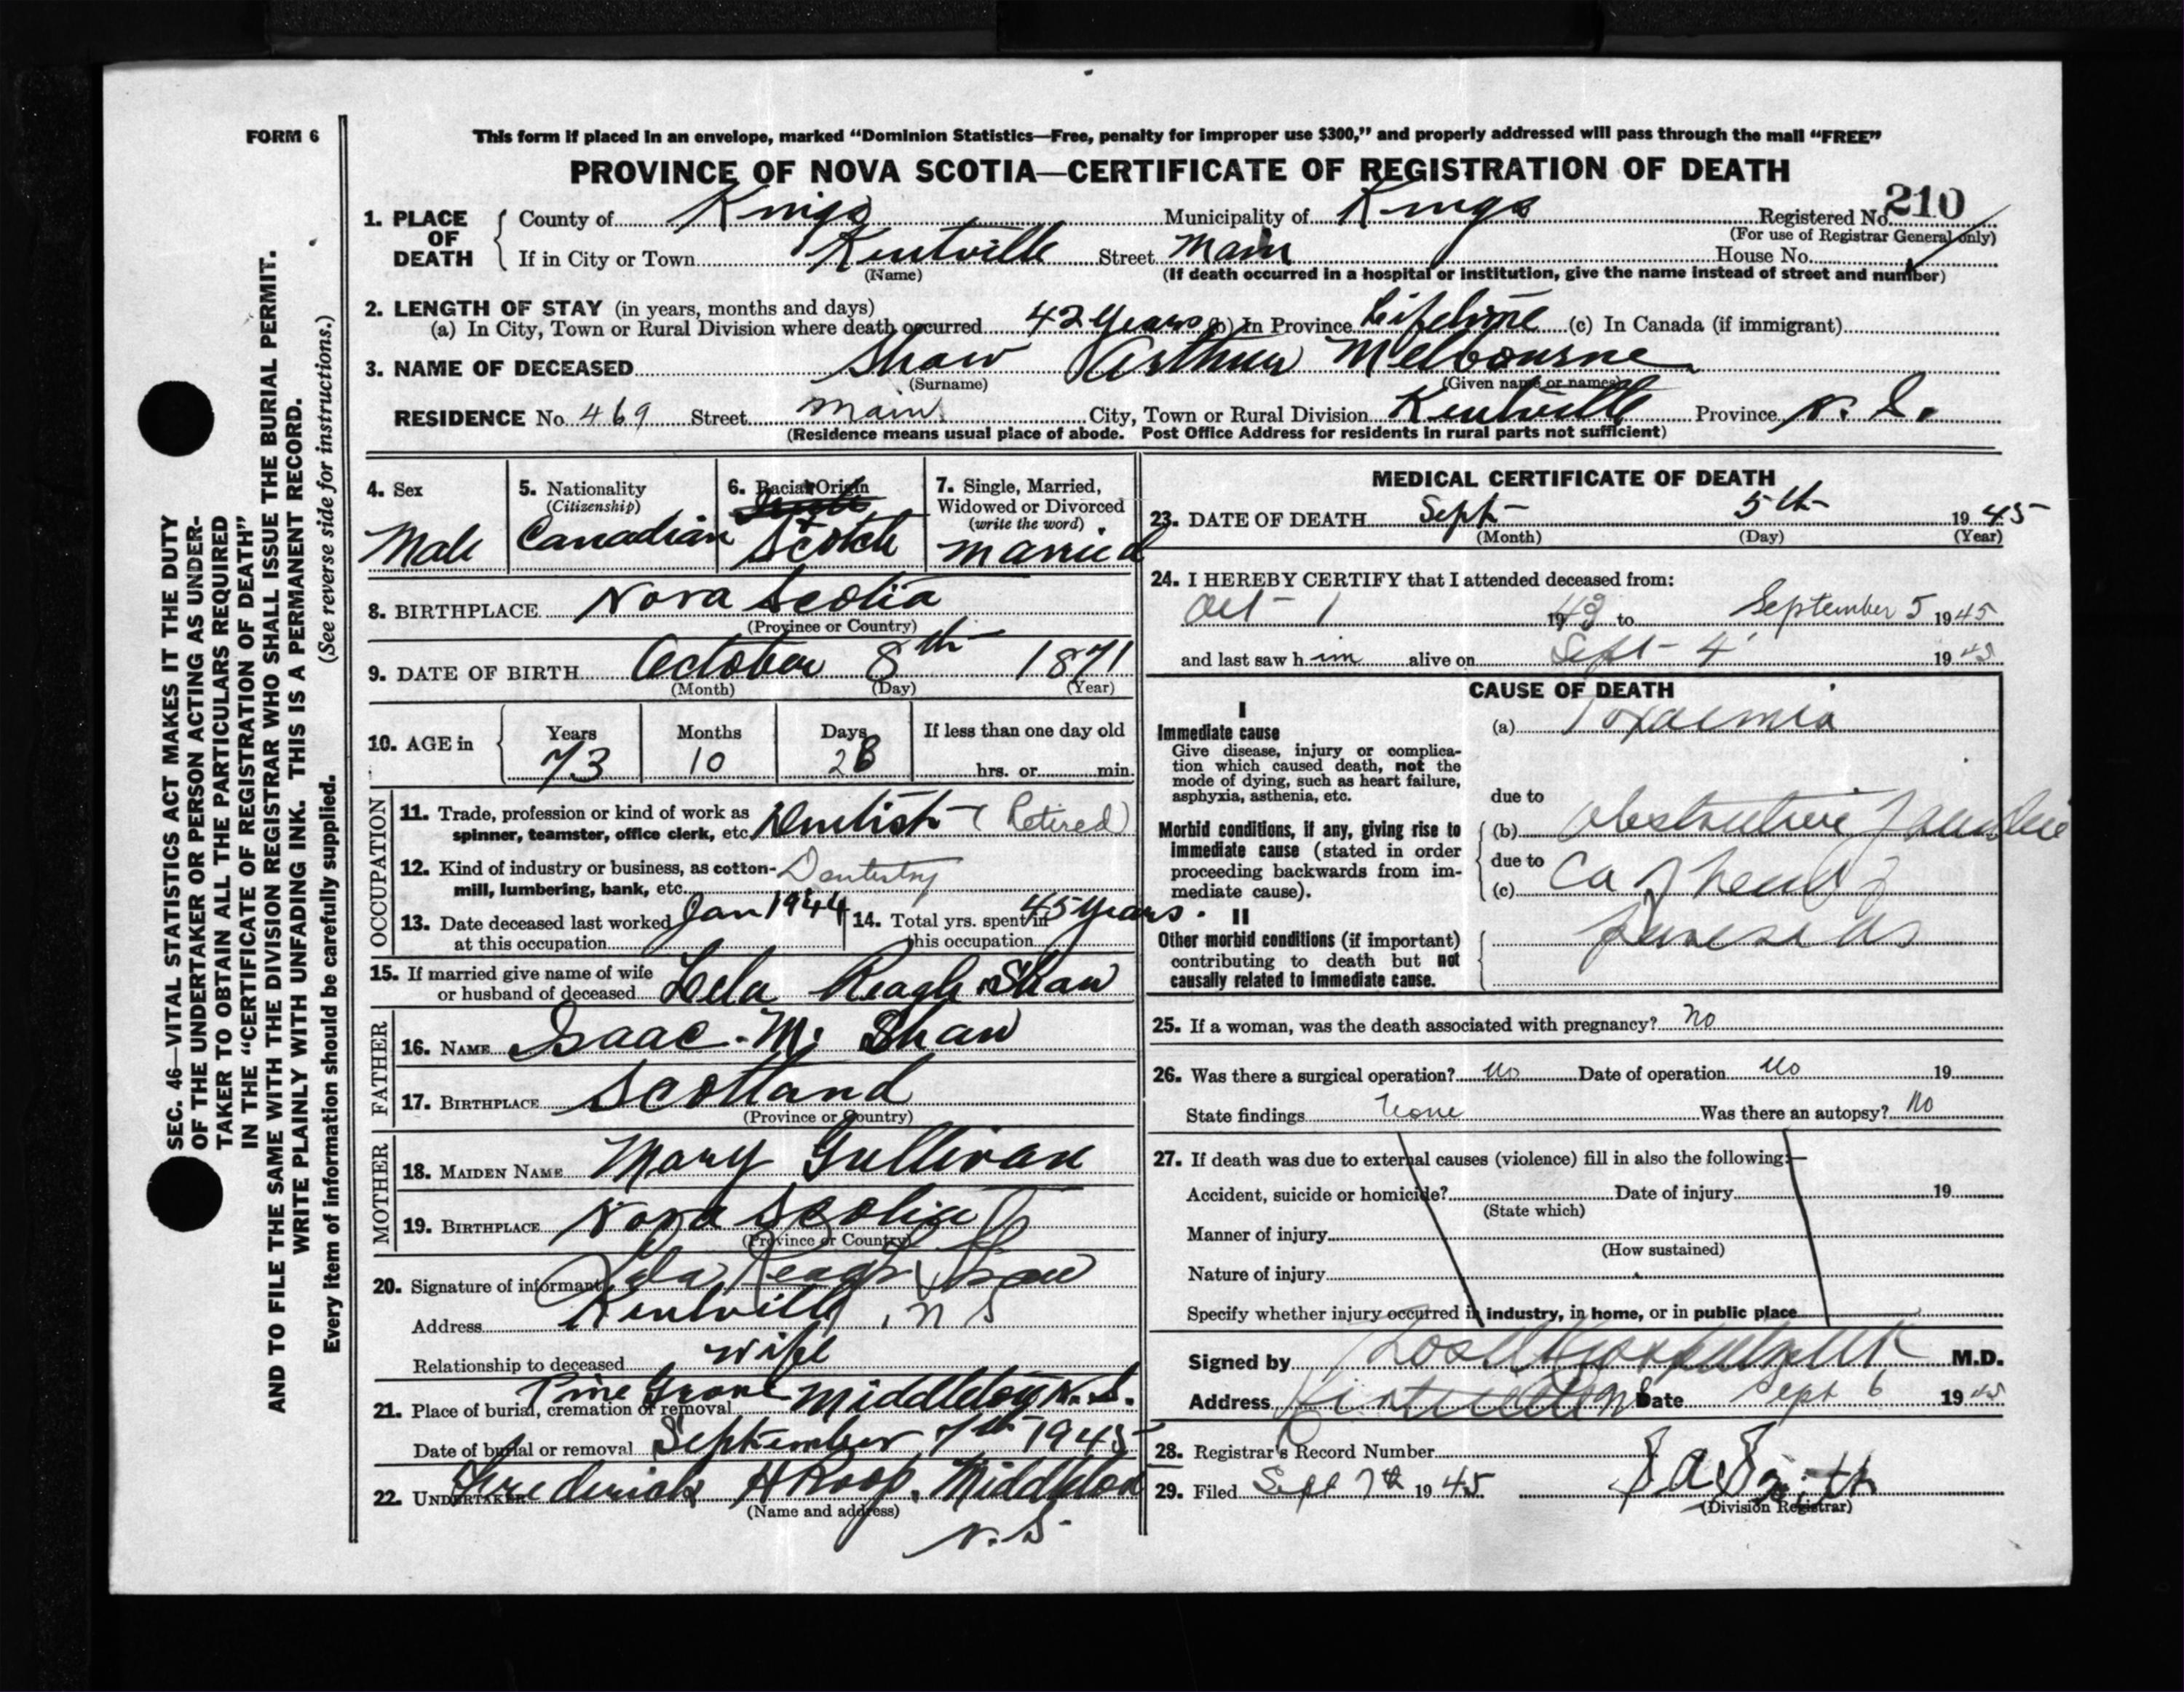 FORM 6
This form if placed in an envelope, marked “Dominion Statistics—Free, penalty for improper use $300,” and properly addressed will pass through the mail “FREE”
PROVINCE OF NOVA SCOTIA—CERTIFICATE OF REGISTRATION OF DEATH
1. PLACE OF DEATH County of Kings Municipality of Kings Registered No. 210
(For use of Registrar General only)
If in City or Town Kentville Street Main House No.
(Name) (If death occurred in a hospital or institution, give the name instead of street and number)
2. LENGTH OF STAY (in years, months and days)
(a) In City, Town or Rural Division where death occurred 42 years (b) In Province Lifetime (c) In Canada (if immigrant)
3. NAME OF DECEASED Shaw Arthur Melbourne
(Surname) (Given name or names)
RESIDENCE No. 469 Street Main City, Town or Rural Division Kentville Province N. S.
(Residence means usual place of abode. Post Office Address for residents in rural parts not sufficient)
4. Sex
Male
5. Nationality
(Citizenship)
Canadian
6. Racial Origin
Scotch
7. Single, Married,
Widowed or Divorced
(write the word)
Married
8. BIRTHPLACE Nova Scotia
(Province or Country)
9. DATE OF BIRTH October 8th 1871
(Month) (Day) (Year)
10. AGE in Years Months Days If less than one day old
73 10 28 hrs. or min.
OCCUPATION
11. Trade, profession or kind of work as
spinner, teamster, office clerk, etc. Dentist (Retired)
12. Kind of industry or business, as cotton-
mill, lumbering, bank, etc. Dentistry
13. Date deceased last worked
at this occupation Jan 1944
14. Total yrs. spent in
this occupation 45 years.
15. If married give name of wife
or husband of deceased Lela Reagh Shaw
FATHER
16. NAME Isaac M. Shaw
17. BIRTHPLACE Scotland
(Province or Country)
MOTHER
18. MAIDEN NAME Mary Gullivan
19. BIRTHPLACE Nova Scotia
(Province or Country)
20. Signature of informant Lela Reagh Shaw
Address Kentville, N S
Relationship to deceased wife
21. Place of burial, cremation or removal Pine Grove Middleton N.S.
Date of burial or removal September 7th 1945
22. UNDERTAKER Frederick H Roop. Middleton
(Name and address)
N. S
MEDICAL CERTIFICATE OF DEATH
23. DATE OF DEATH Sept 5th 1945
(Month) (Day) (Year)
24. I HEREBY CERTIFY that I attended deceased from:
Oct 1 1943 to September 5 1945
and last saw him alive on Sept 4 1945
CAUSE OF DEATH
I
Immediate cause
Give disease, injury or complica-
tion which caused death, not the
mode of dying, such as heart failure,
asphyxia, asthenia, etc.
(a) Toxaemia
due to
Morbid conditions, if any, giving rise to
immediate cause (stated in order
proceeding backwards from im-
mediate cause).
(b) Obstructive Jaundice
due to
(c) Ca of head of
Pancreas
II
Other morbid conditions (if important)
contributing to death but not
causally related to immediate cause.
25. If a woman, was the death associated with pregnancy? No
26. Was there a surgical operation? No Date of operation No 19
State findings None Was there an autopsy? No
27. If death was due to external causes (violence) fill in also the following:—
Accident, suicide or homicide? Date of injury 19
(State which)
Manner of injury
(How sustained)
Nature of injury
Specify whether injury occurred in industry, in home, or in public place
Signed by M.D.
Address Kentville NS Date Sept 6 1945
28. Registrar's Record Number
29. Filed Sept 7th 1945 Smith
(Division Registrar)
SEC. 46—VITAL STATISTICS ACT MAKES IT THE DUTY
OF THE UNDERTAKER OR PERSON ACTING AS UNDER-
TAKER TO OBTAIN ALL THE PARTICULARS REQUIRED
IN THE “CERTIFICATE OF REGISTRATION OF DEATH”
AND TO FILE THE SAME WITH THE DIVISION REGISTRAR WHO SHALL ISSUE THE BURIAL PERMIT.
WRITE PLAINLY WITH UNFADING INK. THIS IS A PERMANENT RECORD.
Every item of information should be carefully supplied. (See reverse side for instructions.)